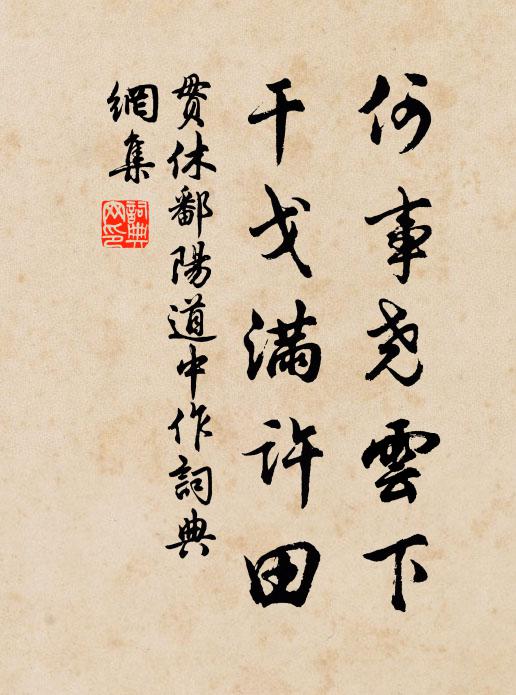 何事尧雲下
干戈满許田
贯休鄱陽道中作詞典
網集
詞典